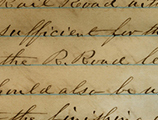 Rail Road with
sufficient for th
the R. Road
ould also be
t the finishing